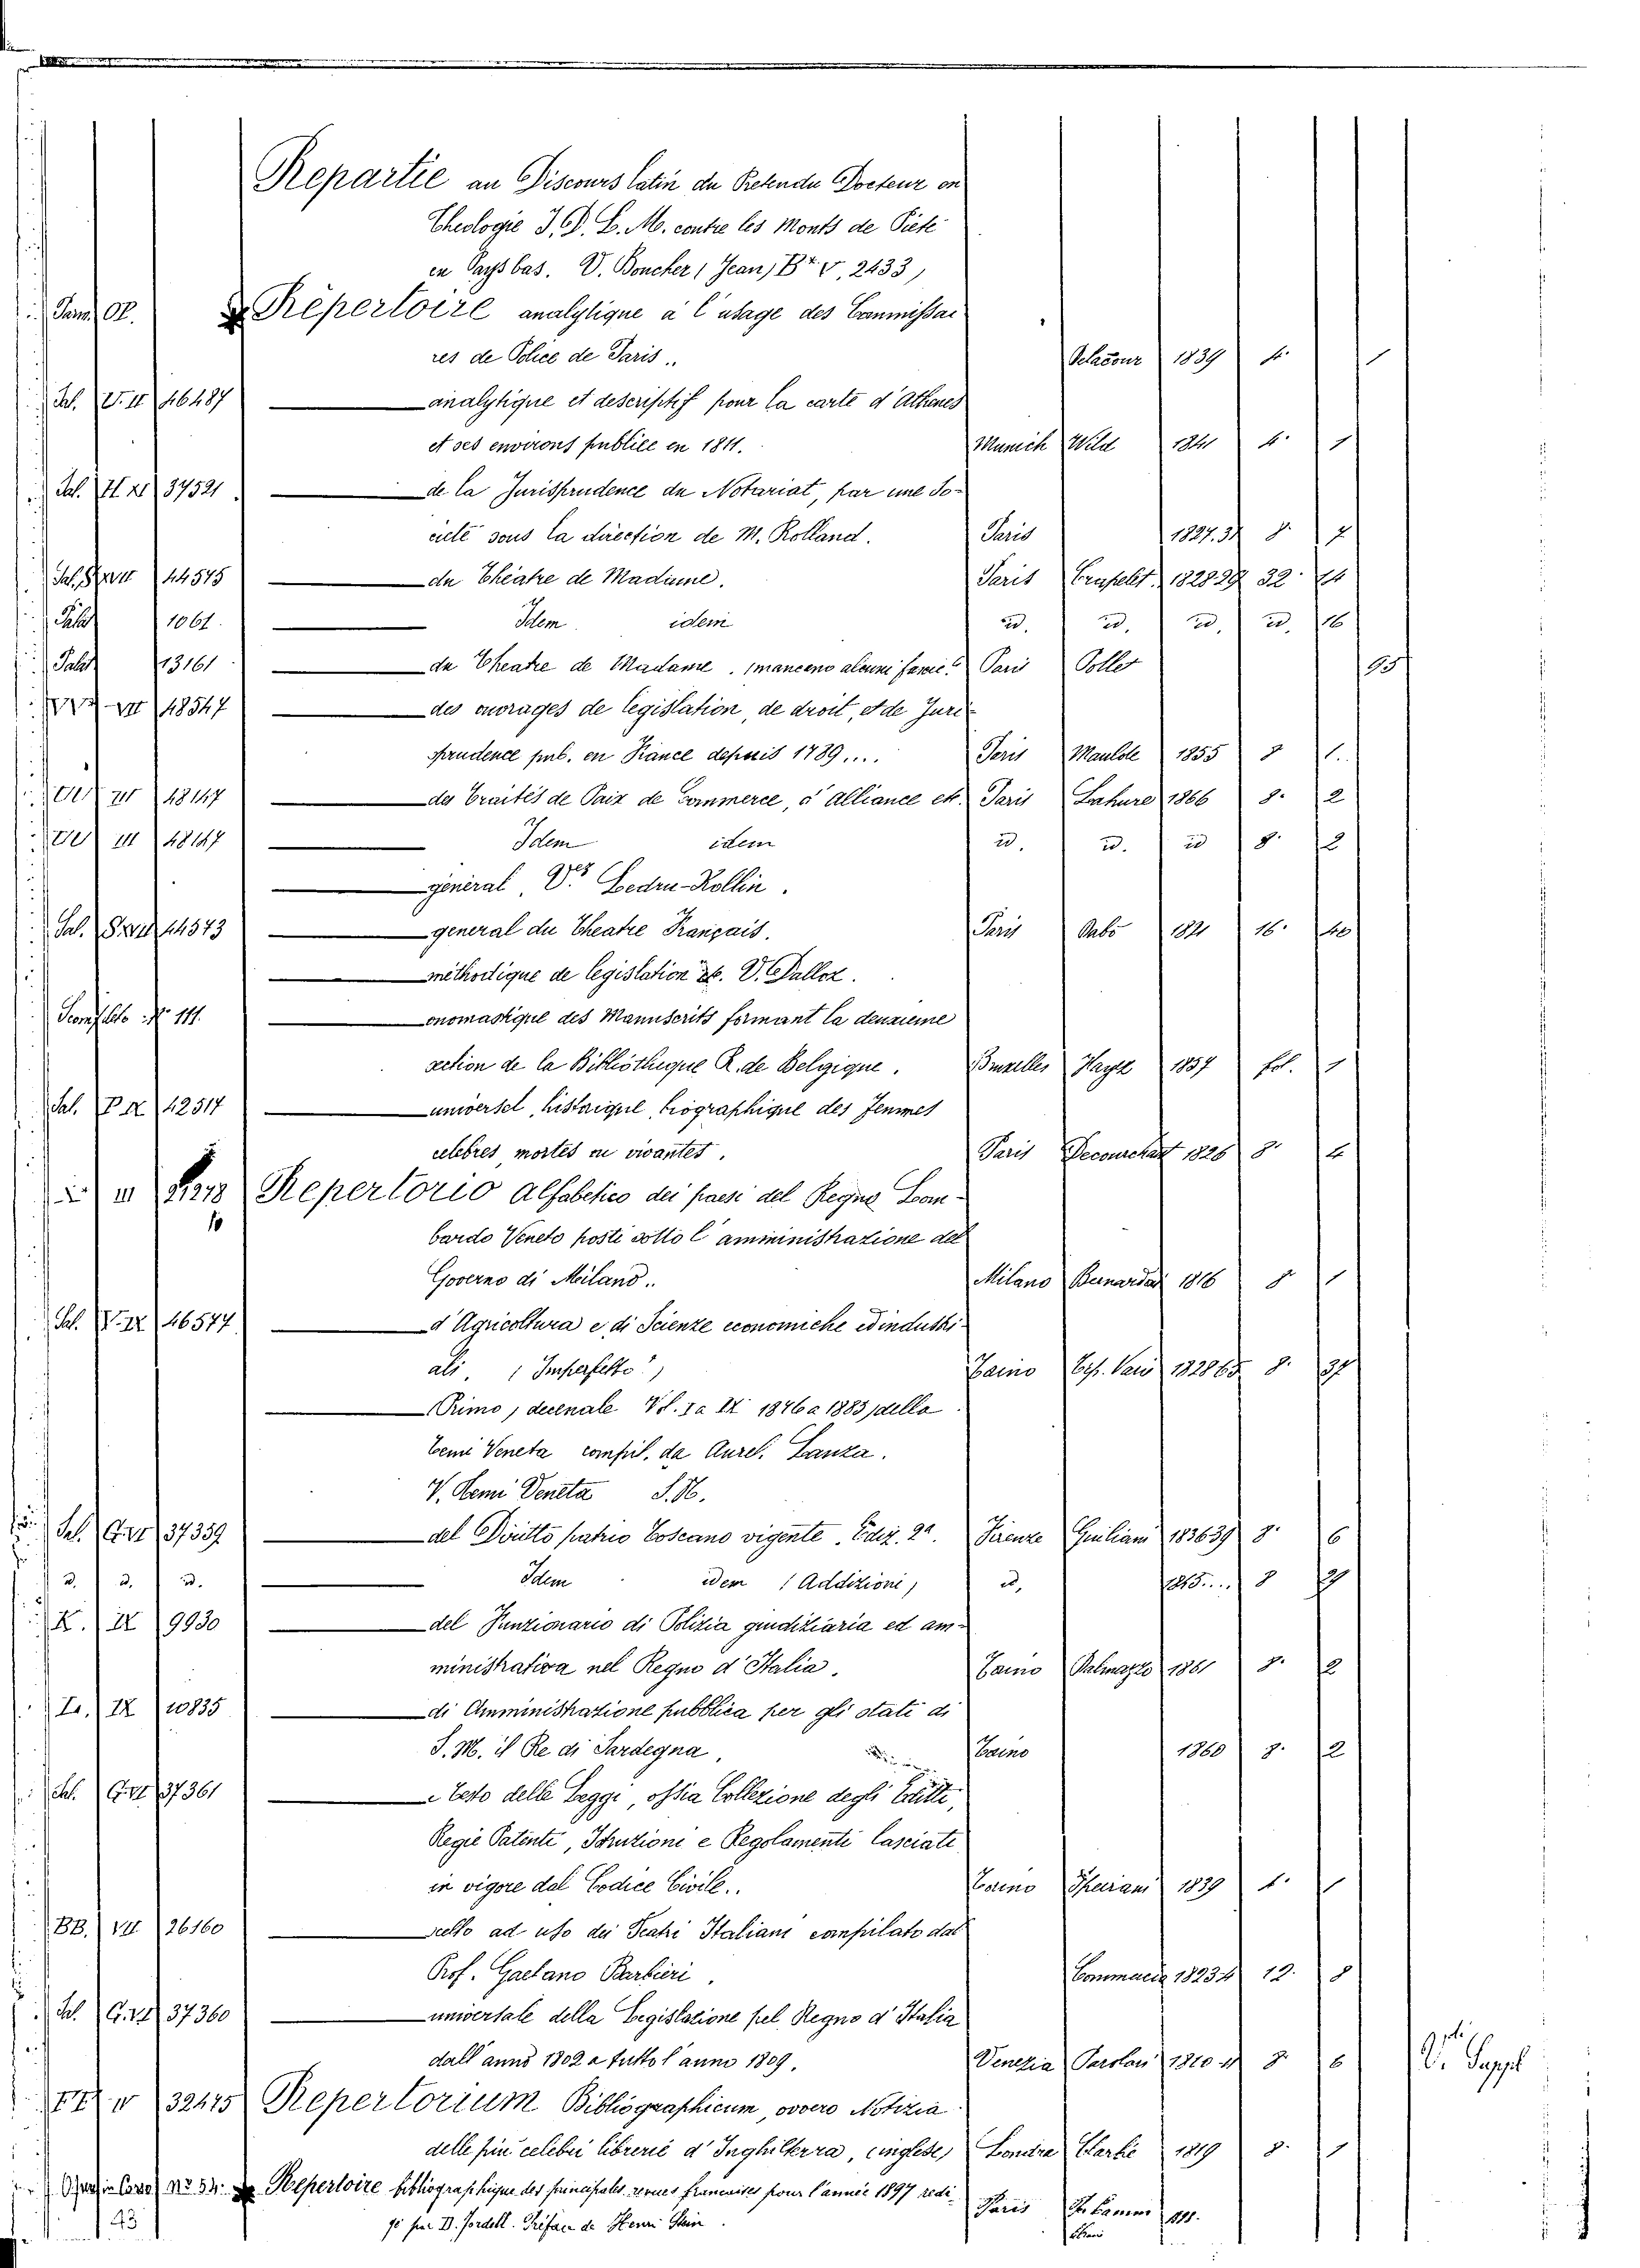 Repartie au Discours latin du Pretendu Docteur en
Theologie J. D. L. M. contre les Monts de Pieté
en Pays bas. V. Boucher (Jean) Br V. 2433)
Répertoire analytique à l'usage des Commissai
res de Police de Paris.. Delacour 1839 4. 1
Sal. V. II 46487 analytique et descriptif pour la carte d'Athenes
et ses environs publiée en 1841. Munich Wild 1841 4. 1
Sal. H XI 37521 de la Jurisprudence du Notariat, par une So-
cieté sous la direction de M. Rolland. Paris 1827.31 8. 7
Sal. 44575 du Théatre de Madame. Paris 182829 32.
1061. Idem idem id. id. id. id. 16
13161 du Theatre de Madame. (mancano alcuni fasci. Paris Pollet 95
VII 48547 des ouvrages de legislation, de droit, et de Juri-
sprudence pub. en France depuis 1789.... Paris Maulde 1855 8 1.
48147 des Traités de Paix de Commerce, d'Alliance etc. Paris Lahure 1866 8. 2
III 48147 Idem idem id. id. id 8. 2
général, V. Ledru-Rollin.
Sal. 44573 general du Theatre Français. Paris Babo 1821 16.
méthodique de legislation etc. V. Dalloz.
No 111. onomastique des Manuscrits formant la deuxieme
section de la Bibliótheque R. de Belgique. Bruxelles Hayez 1857 fol. 1
Sal. 42517 universel, histoirique, biographique des femmes
celebres, mortes ou vivantes. Paris 1826 8. 4
Repertorio alfabetico dei paesi del Regno Lom-
10
bardo Veneto posti sotto l'amministrazione del
Governo di Milano.. Milano Bernardoni 1816 8. 1
Sal. V. IX 46577 d'Agricoltura e di Scienze economiche ed industri-
ali, (Imperfetto) Torino 182865 8. 37
Primo, decenale Vol. I a IX 1876 a 1883, della
Temi Veneta compil. da Aurel. Lanza.
V. Temi Veneta S. H.
Sal. 37359 del Diritto patrio Toscano vigente. Ediz. 2a. Firenze Giuliani 183639 8. 6
id. id. id. Idem idem (Addizioni) id, 1845.... 8
X. IX 9930 del Funzionario di Polizia giudiziaria ed am-
ministrativa nel Regno d'Italia. Torino Dalmazzo 1861 8. 2
IX 10835 di Amministrazione pubblica per gli stati di
S. M. il Re di Sardegna, Torino 1860 8. 2
Sal. 37361 Testo delle Leggi, ossia Collezione degli Editti,
Regie Patenti, Istruzioni e Regolamenti lasciati
in vigore dal Codice Civile.. Torino 1839 1
BB. VII 26160 scelto ad uso dei Teatri Italiani compilato dal
Prof. Gaetano Barbieri, 18234 12. 8
Sal. 37360 universale della Legislazione pel Regno d'Italia
dall'anno 1802 a tutto l'anno 1809. Venezia 1810 11 8. 6
V 32475 Repertorium Bibliographicum, ovvero Notizia
delle piu celebri librerie d'Inghilterra, (inglese) Londra Clarke 1819 8. 1
No 34. Repertoire bibliographique des principales revues françaises pour l'année 1897 redi-
gé par D. Jordell. Préface de Henri Stein Paris
43
V. Suppl